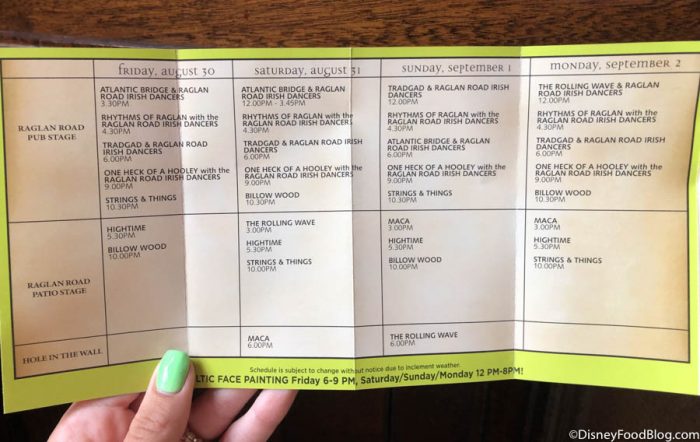 friday, august 30
saturday, august 31
sunday, september 1
monday, september 2
RAGLAN ROAD
PUB STAGE
ATLANTIC BRIDGE & RAGLAN
ROAD IRISH DANCERS
3.30PM
RHYTHMS OF RAGLAN with the
RAGLAN ROAD IRISH DANCERS
4.30PM
TRADGAD & RAGLAN ROAD IRISH
DANCERS
6.00PM
ONE HECK OF A HOOLEY with the
RAGLAN ROAD IRISH DANCERS
9.00PM
STRINGS & THINGS
10.30PM
ATLANTIC BRIDGE & RAGLAN
ROAD IRISH DANCERS
12.00PM - 3.45PM
RHYTHMS OF RAGLAN with the
RAGLAN ROAD IRISH DANCERS
4.30PM
TRADGAD & RAGLAN ROAD IRISH
DANCERS
6.00PM
ONE HECK OF A HOOLEY with the
RAGLAN ROAD IRISH DANCERS
9.00PM
BILLOW WOOD
10.30PM
TRADGAD & RAGLAN ROAD IRISH
DANCERS
12.00PM
RHYTHMS OF RAGLAN with the
RAGLAN ROAD IRISH DANCERS
4.30PM
ATLANTIC BRIDGE & RAGLAN
ROAD IRISH DANCERS
6.00PM
ONE HECK OF A HOOLEY with the
RAGLAN ROAD IRISH DANCERS
9.00PM
STRINGS & THINGS
10.30PM
THE ROLLING WAVE & RAGLAN
ROAD IRISH DANCERS
12.00PM
RHYTHMS OF RAGLAN with the
RAGLAN ROAD IRISH DANCERS
4.30PM
TRADGAD & RAGLAN ROAD IRISH
DANCERS
6.00PM
ONE HECK OF A HOOLEY with the
RAGLAN ROAD IRISH DANCERS
9.00PM
BILLOW WOOD
10.30PM
RAGLAN ROAD
PATIO STAGE
HIGHTIME
5.30PM
BILLOW WOOD
10.00PM
THE ROLLING WAVE
3.00PM
HIGHTIME
5.30PM
STRINGS & THINGS
10.00PM
MACA
3.00PM
HIGHTIME
5.30PM
BILLOW WOOD
10.00PM
MACA
3.00PM
HIGHTIME
5.30PM
STRINGS & THINGS
10.00PM
HOLE IN THE WALL
MACA
6.00PM
THE ROLLING WAVE
6.00PM
Schedule is subject to change without notice due to inclement weather.
LTIC FACE PAINTING Friday 6-9 PM, Saturday/Sunday/Monday 12 PM-8PM!
©DisneyFoodBlog.com